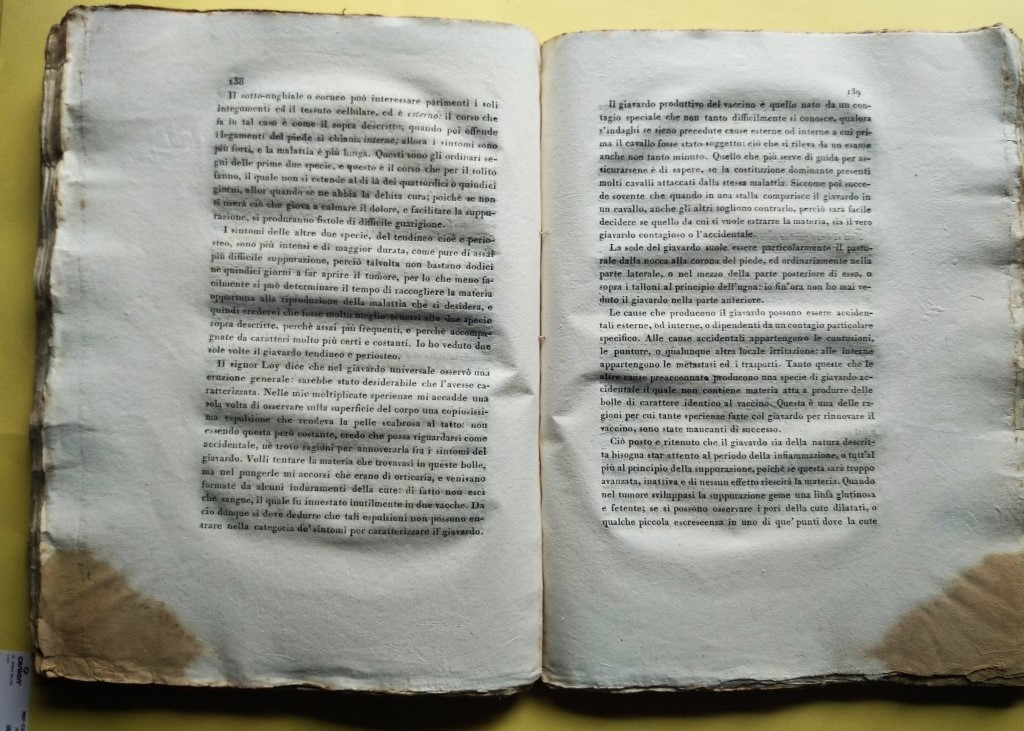 138
Il sotto-unghiale o corneo può interessare parimenti i soli
integumenti ed il tessuto cellulare, ed è esterno: il corso che
fa in tal caso è come il sopra descritto; quando poi offende
i legamenti del piede si chiama interno; allora i sintomi sono
più forti, e la malattia è più lunga. Questi sono gli ordinari se-
gni delle prime due specie, e questo è il corso che per il solito
fanno, il quale non si estende al di là dei quattordici o quindici
giorni, allor quando se ne abbia la debita cura; poichè se non
si userà ciò che giova a calmare il dolore, e facilitare la suppu-
razione, si produranno fistole di difficile guarigione.
I sintomi delle altre due specie, del tendineo cioè e perio-
steo, sono più intensi e di maggior durata, come pure di assai
più difficile suppurazione, perciò talvolta non bastano dodici
nè quindici giorni a far aprire il tumore, per lo che meno fa-
cilmente si può determinare il tempo di raccogliere la materia
opportuna alla riproduzione della malattia che si desidera, e
quindi crederei che fosse molto meglio tenersi alle due specie
sopra descritte, perchè assai più frequenti, e perchè accompa-
gnate da caratteri molto più certi e costanti. Io ho veduto due
sole volte il giavardo tendineo e periosteo.
Il signor Loy dice che nel giavardo universale osservò una
eruzione generale: sarebbe stato desiderabile che l'avesse ca-
ratterizzata. Nelle mie moltiplicate sperienze mi accadde una
sola volta di osservare sulla superficie del corpo una copiosissi-
ma espulsione che rendeva la pelle scabrosa al tatto: non
essendo questa però costante, credo che possa riguardarsi come
accidentale, nè trovo ragioni per annoverarla fra i sintomi del
giavardo. Volli tentare la materia che trovavasi in queste bolle,
ma nel pungerle mi accorsi che erano di orticaria, e venivano
formate da alcuni induramenti della cute: di fatto non escì
che sangue, il quale fu innestato inutilmente in due vacche. Da
ciò dunque si deve dedurre che tali espulsioni non possono en-
trare nella categoria de' sintomi per caratterizzare il giavardo.
139
Il giavardo produttivo del vaccino è quello nato da un con-
tagio speciale che non tanto difficilmente si conosce, qualora
s'indaghi se sieno precedute cause esterne od interne a cui pri-
ma il cavallo fosse stato soggetto: ciò che si rileva da un esame
anche non tanto minuto. Quello che più serve di guida per as-
sicurarsene è di sapere, se la costituzione dominante presenti
molti cavalli attaccati dalla stessa malattia. Siccome poi succe-
de sovente che quando in una stalla comparisce il giavardo in
un cavallo, anche gli altri sogliono contrarlo, perciò sarà facile
decidere se quello da cui si vuole estrarre la materia, sia il vero
giavardo contagioso o l'accidentale.
La sede del giavardo suole essere particolarmente il pastu-
rale dalla nocca alla corona del piede, ed ordinariamente nella
parte laterale, o nel mezzo della parte posteriore di esso, o
sopra i talloni al principio dell'ugna: io fin'ora non ho mai ve-
duto il giavardo nella parte anteriore.
Le cause che producono il giavardo possono essere acciden-
tali esterne, od interne, o dipendenti da un contagio particolare
specifico. Alle cause accidentali appartengono le contusioni,
le punture, o qualunque altra locale irritazione: alle interne
appartengono le metastasi ed i trasporti. Tanto queste che le
altre cause preaccennate producono una specie di giavardo ac-
cidentale il quale non contiene materia atta a produrre delle
bolle di carattere identico al vaccino. Questa è una delle ra-
gioni per cui tante sperienze fatte col giavardo per rinnovare il
vaccino, sono state mancanti di successo.
Ciò posto e ritenuto che il giavardo sia della natura descrit-
ta bisogna star attento al periodo della infiammazione, o tutt'al
più al principio della suppurazione, poichè se questa sarà troppo
avanzata, inattiva e di nessun effetto riescirà la materia. Quando
nel tumore sviluppasi la suppurazione geme una linfa glutinosa
e fetente; se si possono osservare i pori della cute dilatati, o
qualche piccola escrescenza in uno di que' punti dove la cute